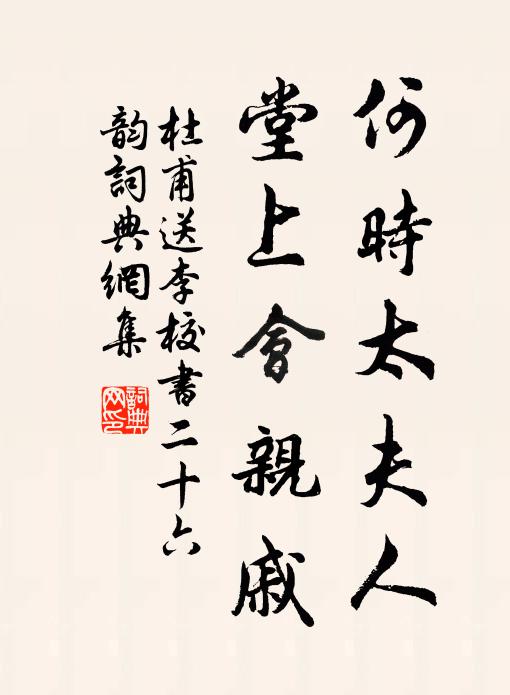 何時太夫人
堂上會親戚
杜甫送李校書二十六
韵詞典網集
詞典網印